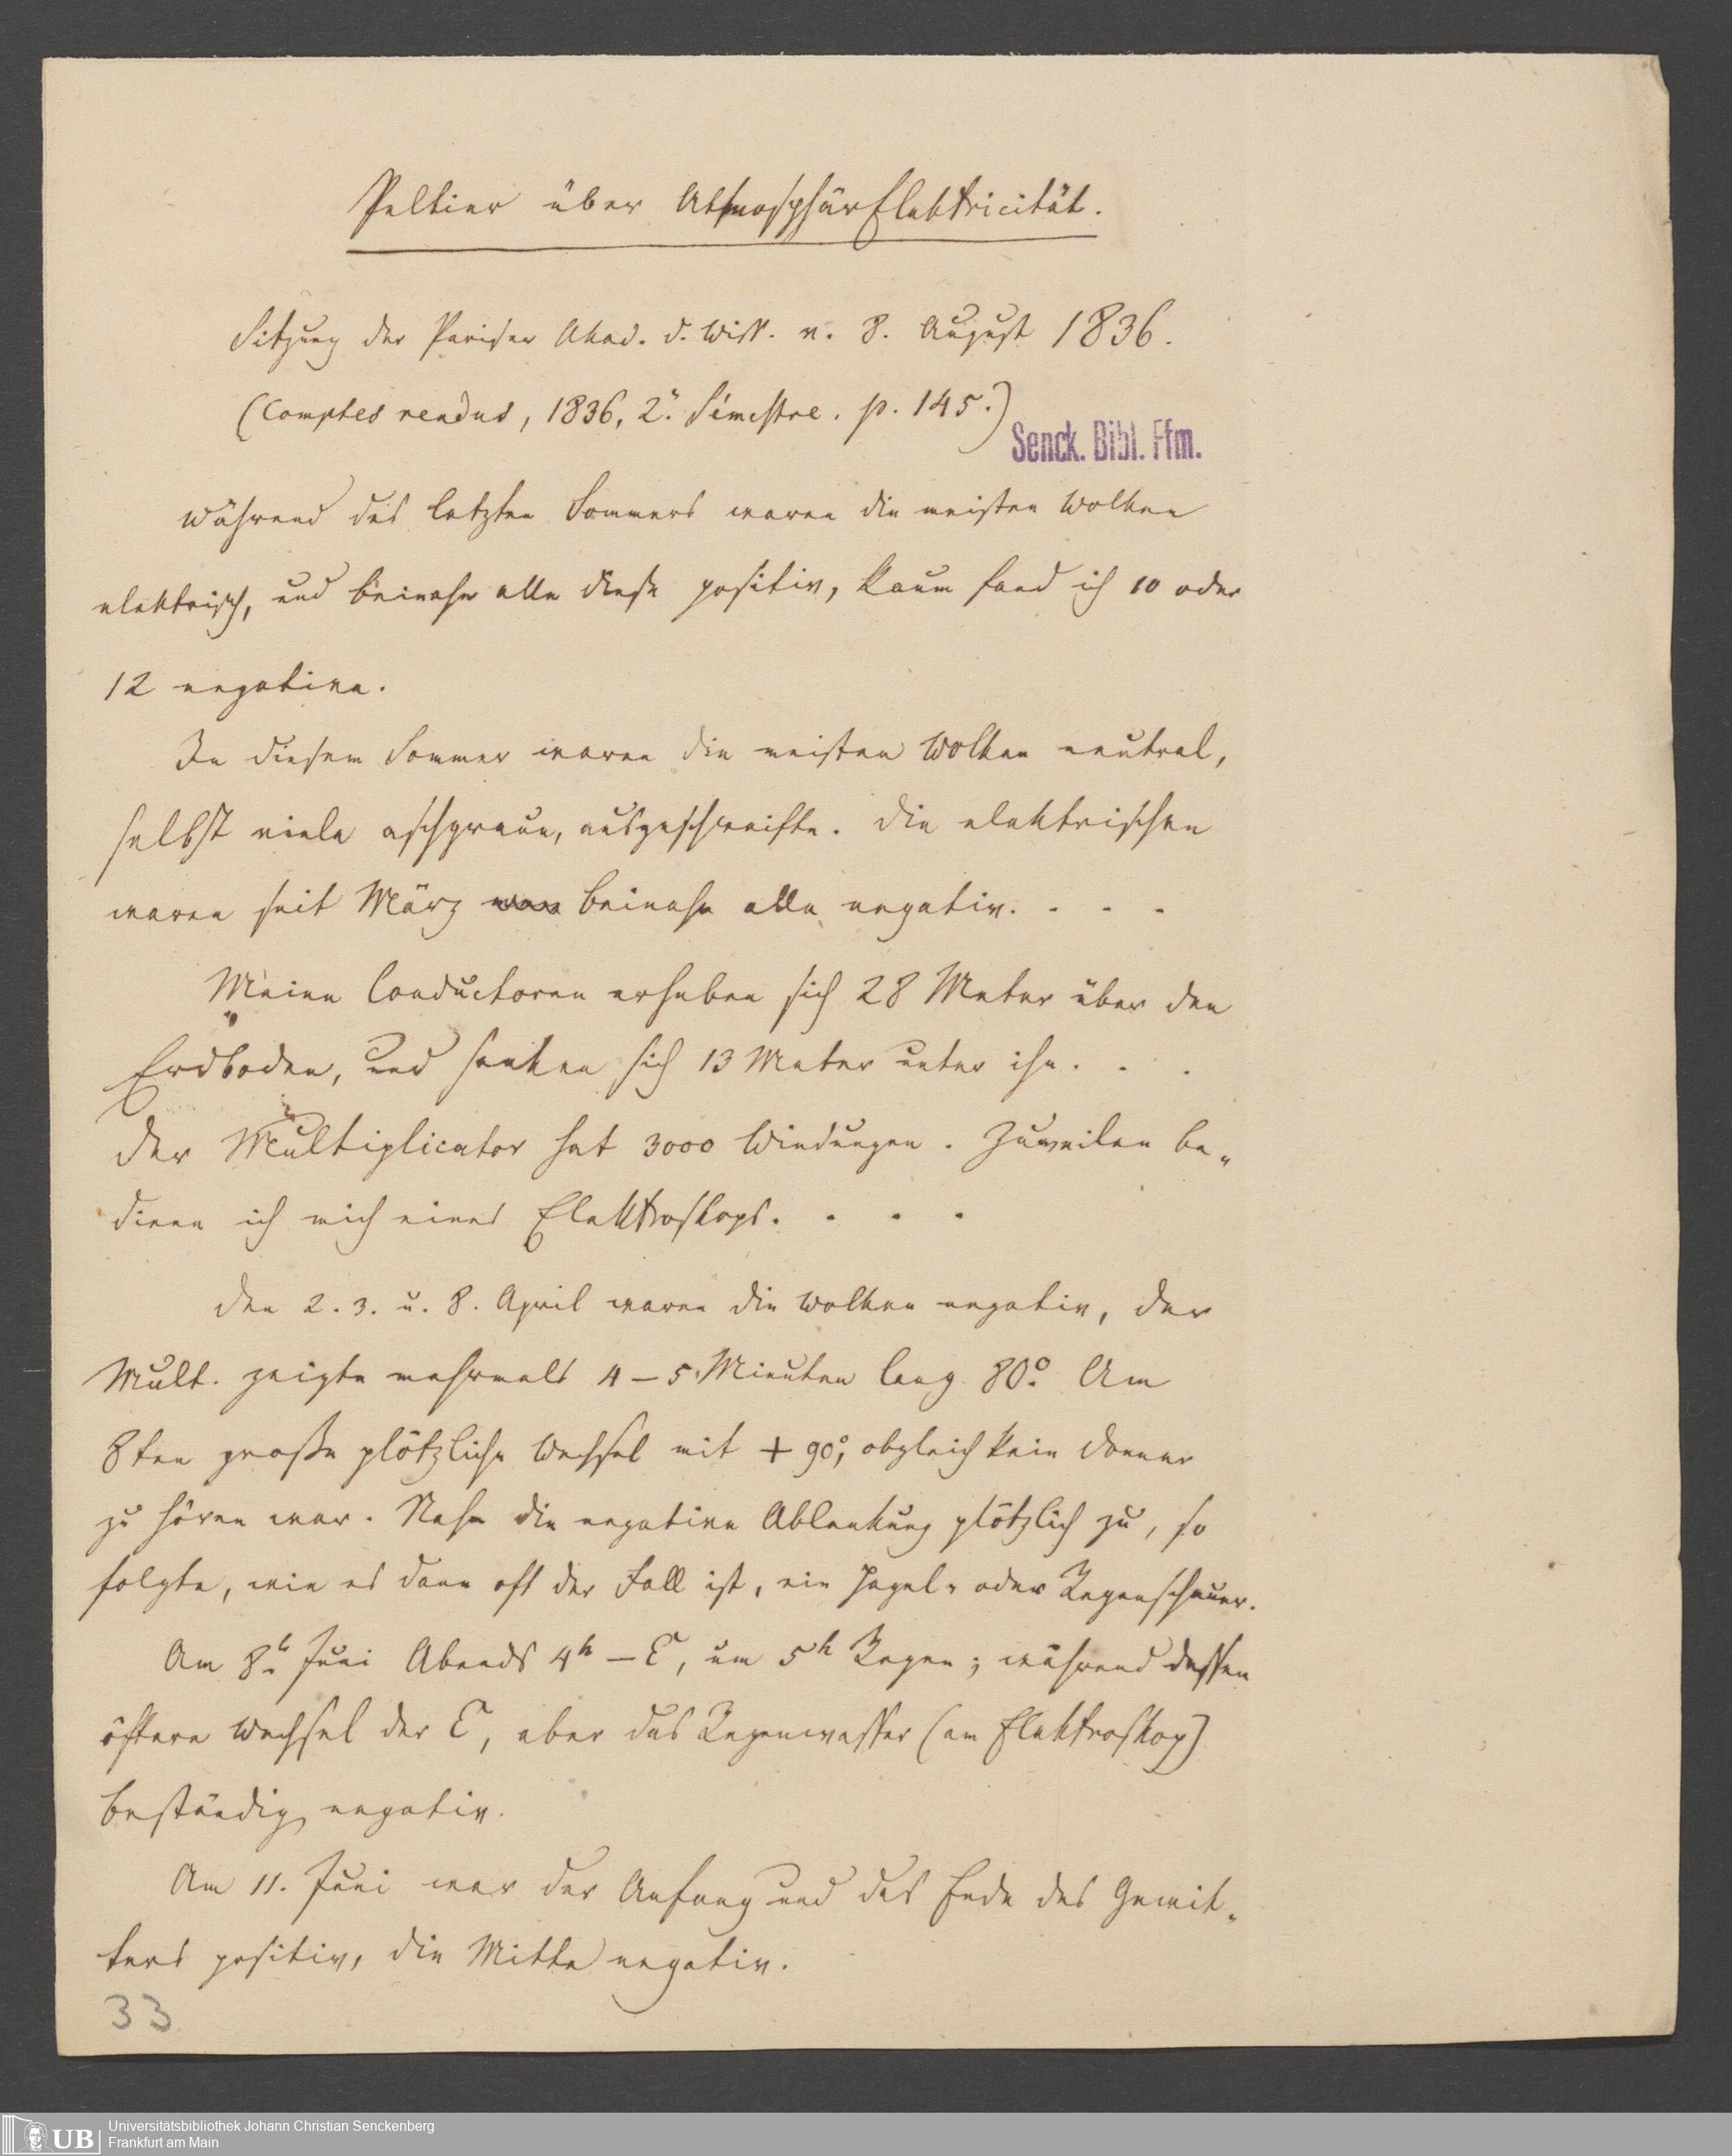 Peltier über AtmosphärElektricität.
Sitzung der Pariser Akad. d. Wiss. v. 8. August 1836.
(Comptes rendus, 1836, 2. Sémestre. p. 145.)
Senck. Bibl. Ffm.
Während des letzten Sommers waren die meisten Wolken
elektrisch, und beinahe alle diese positiv, kaum fand ich 10 oder
12 negative.
In diesem Sommer waren die meisten Wolken neutral,
selbst viele aschgraue, ausgeschweifte. Die elektrischen
waren seit März war beinahe alle negativ. . . .
Meine Conductoren erheben sich 28 Meter über den
Erdboden, und senken sich 13 Meter unter ihn. . .
Der Multiplicator hat 3000 Windungen. Zuweilen be-
diene ich mich eines Elektroskops. . . .
Den 2. 3. u. 8. April waren die Wolken negativ, der
Mult. zeigte mehrmals 4–5 Minuten lang 80°. Am
8ten große plötzliche Wechsel mit + 90°, obgleich kein Donner
zu hören war. Nahm die negative Ablenkung plötzlich zu, so
folgte, wie es dann oft der Fall ist, ein Hagel- oder Regenschauer.
Am 8. Juni Abends 4h – E, um 5h Regen; während dessen
öftere Wechsel der E, aber das Regenwasser (am Elektroskop)
beständig negativ.
Am 11. Juni war der Anfang und das Ende des Gewit-
ters positiv, die Mitte negativ.
33
UB Universitätsbibliothek Johann Christian Senckenberg
Frankfurt am Main